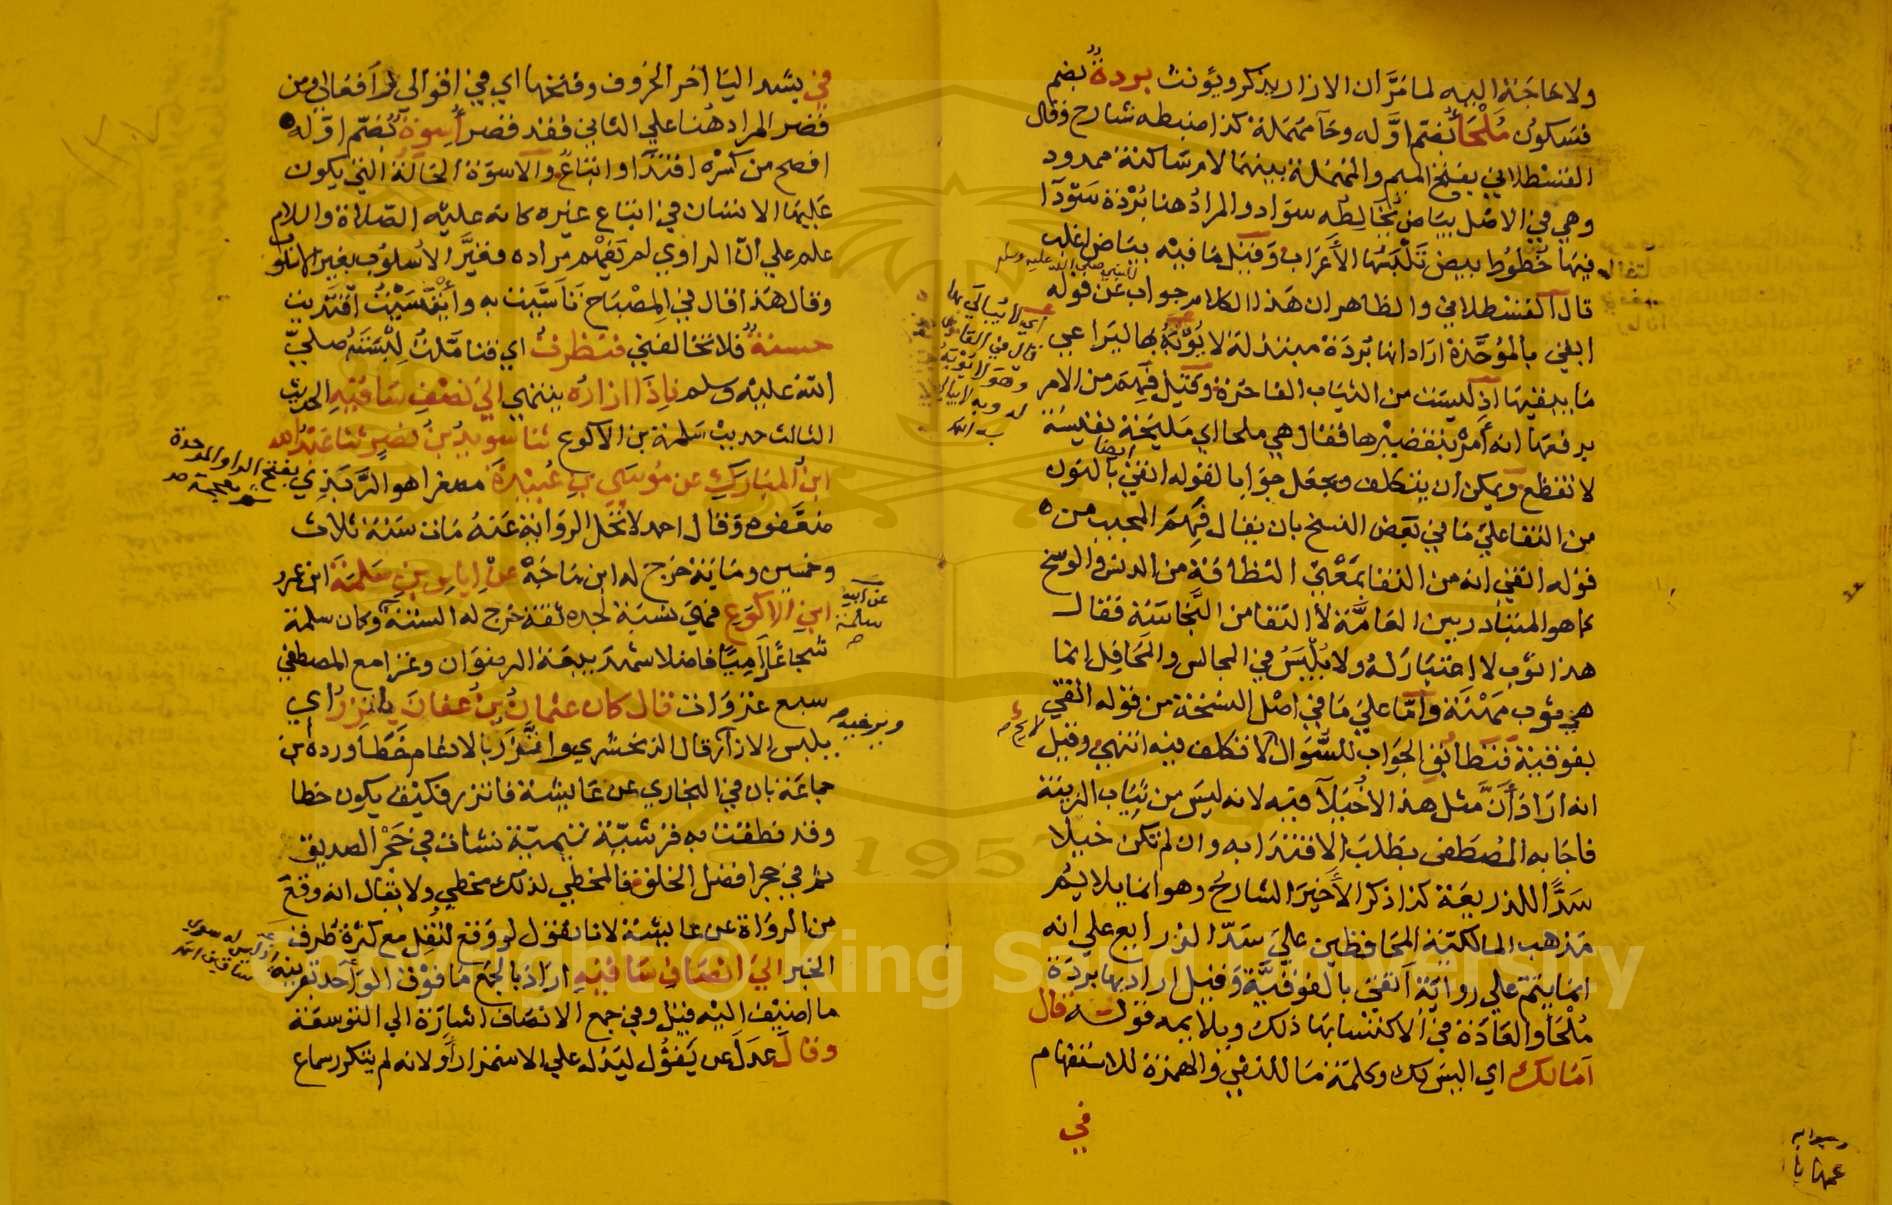 ولا حاجة اليه لما مر ان الازار يذكر ويؤنث بردة بضم
فسكون ملحا بضم اوله وحآ مهملة كذا ضبطه شارح وقال
القسطلاني بفتح الميم والمهملة بينهما لام ساكنة ممدود
وهي في الاصل بياض يخالطه سواد والمراد هنا بردة سودآ
فيها خطوط بيض تلبسها الأعراب وقيل ما فيه بياض اغلب
قال القسطلاني والظاهر ان هذا الكلام جواب عن قوله
ابقي بالموحدة اراد انها بردة مبتذلة لا يؤبه بها ليراعي
ما يبقيها اذ ليست من الثياب الفاخرة وكتل فهم من الامر
برفعها انه أمر بتقصيرها فقال هي ملحا اي مليحة نفيسة
لا تقطع ويمكن أن يتكلف ويجعل جوابا لقوله انقي بالنون
من النقا على ما في بعض النسخ بان يقال فهم المجيب من
قوله انقي انه من النقا بمعني النظافة من الدنس والوسخ
كما هو المتبادر بين العامة لا النقا من النجاسة فقال
هذا ثوب لا اعتبار له ولا يلبس في المجالس والمحافل انما
هي ثوب مهنة وأما على ما في اصل النسخة من قوله اتقي
بفوقية فتطابق الجواب للسؤال لا تكلف فيه انتهي وقيل
انه اراد أن مثل هذه لا خيلآ فيه لانه ليس من ثياب الزينة
فاجابه المصطفى بطلب الاقتدا به وان لم تكن خيلا
سدا للذريعة كذا ذكر الأخير الشارح وهو انما يلايم
مذهب المالكية المحافظين على سد الذرايع على انه
انما يتم على رواية أتقي بالفوقية وقيل اراد بها بردة
ملحا والعادة في الاكتساب بها ذلك ويلايمه قوله قال
أما لك اي اليس لك وكلمة ما للنفي والهمزة للاستفهام
في
للنبي صلى الله عليه وسلم
اي لا يبالي بها
قال في القاموس
وهو لا يؤبه
له وبه لا يبالي
به اه
ايضا
في بشد اليا اخر الحروف وفتحها اي في اقوالي او أفعالي ومن
قصر المراد هنا علي الثاني فقد قصر أسوة بضم اوله
افصح من كسره اقتدآ او اتباع والاسوة الحالة التي يكون
عليها الانسان في اتباع غيره كانه عليه الصلاة والسلام
علم علي أن الراوي لم يفهم مراده فغير الأسلوب بغير الاسلوب
وقال هذا قال في المصباح تأسيت به وأتسيت اقتديت
حسنة فلا تخالفني فنظرت اي فتاملت لبسته صلي
الله عليه وسلم فاذا ازاره ينتهي الي نصف ساقيه الحديث
الثالث حديث سلمة بن الاكوع ثنا سويد بن نصر ثنا عبد الله
ابن المبارك عن موسي بن عبيدة مصغرا هو الربذي بفتح الرا والموحدة
ثم معجمة صح
ضعفوه وقال احمد لا تحل الرواية عنه مات سنة ثلاث
وخمسين وماية خرج له ابن ماجة عن اياس بن سلمة ابن عمرو
ابن الاكوع فهي نسبة لجده ثقة خرج له الستة وكان سلمة
عن ابيه
سلمة
صح
شجاعا راميا فاضلا شهد بيعة الرضوان وغزا مع المصطفي
سبع غزوات قال كان عثمان بن عفان ياتزر اي
يلبس الازار قال الزمخشري واتزر بالادغام خطأ ورده ابن
جماعة بان في البخاري عن عايشة فاتزر فكيف يكون خطا
وقد نطقت به قرشية تيمية نشات في حجر الصديق
ثم في حجر افضل الخلق فالمخطي لذلك مخطي ولا يقال انه وقع
من الرواة عن عايشة لانا نقول لو وقع لنقل مع كثرة طرف
الخبر الي انصاف ساقيه اراد بالجمع ما فوق الواحد بقرينة
اذ ليس له سوى
ساقين اه
ما اضيف اليه قيل وفي جمع الانصاف اشارة الي التوسعة
وقال عدل عن يقول ليدل علي الاستمرار أو لانه لم يتكرر سماع
Copyright © King Saud University
1957